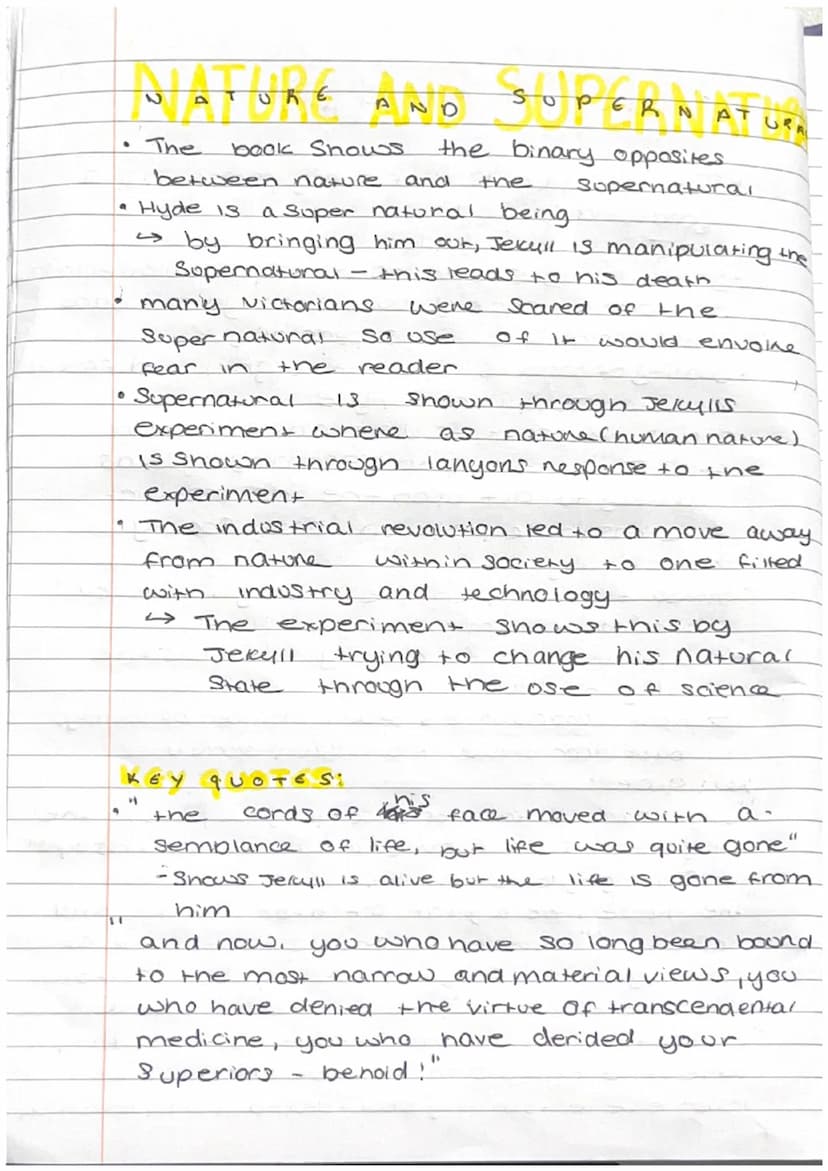 NATURE AND SUPERNATURA
• The book Shows the binary opposites
between nature and the supernatural
• Hyde is a super natural being
↳ by bringing him out, Jekyll is manipulating the
Supernatural - this leads to his death
• many victorians were scared of the
Super natural so use of it would envoke
fear in the reader
• Supernatural is shown through Jekylls
experiment where as nature (human nature)
is shown through lanyons response to the
experiment
• The industrial revolution led to a move away
from nature within society to one filled
with industry and technology
↳ The experiment shows this by
Jekyll trying to change his natural
State through the use of science
KEY QUOTES:
• "the cords of his face moved with a
semblance of life, but life was quite gone"
- Shows Jekyll is alive but the life is gone from
him
"and now, you who have so long been bound
to the most narrow and material views, you
who have denied the virtue of transcendental
medicine, you who have derided your
Superiors - behold!"